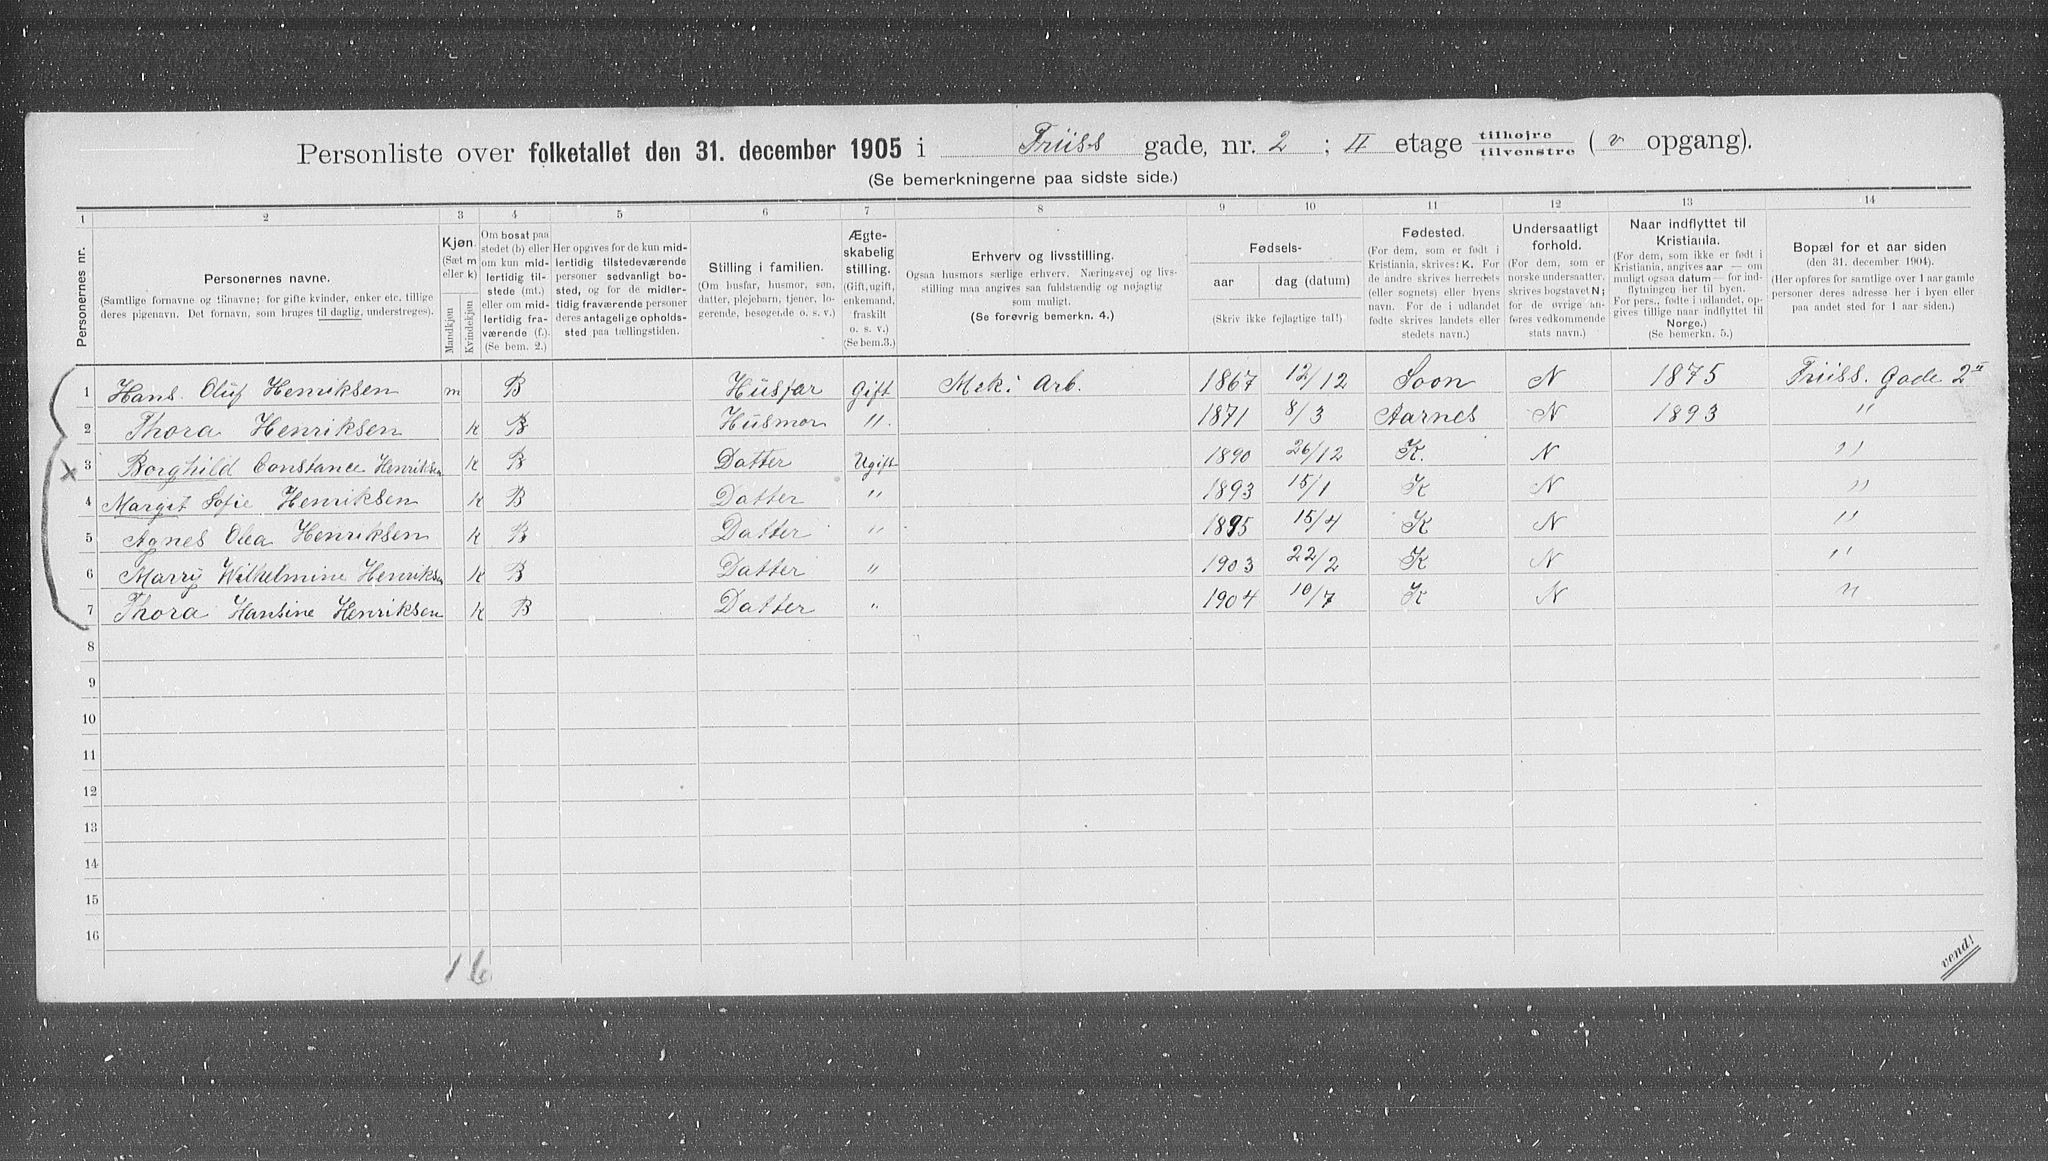 Personliste over folketallet den 31. december 1905 i Friiss gade, nr. 2 ; II etage tilhøjre tilvenstre ( v opgang).
(Se bemerkningerne paa sidste side.)
1 2 3 4 5 6 7 8 9 10 11 12 13 14
Personernes nr.
Personernes navne.
(Samtlige fornavne og tilnavne; for gifte kvinder, enker etc. tillige
deres pigenavn. Det fornavn, som bruges til daglig, understreges).
Kjøn.
(Sæt m
eller k)
Mandkjøn
Kvindekjøn
Om bosat paa
stedet (b) eller
om kun mid-
lertidig til-
stede (mt.)
eller om mid-
lertidig fra-
værende (f.).
(Se bem. 2.)
Her opgives for de kun mid-
lertidig tilstedeværende
personer sedvanligt bo-
sted, og for de midler-
tidig fraværende personer
deres antagelige opholds-
sted paa tællingstiden.
Stilling i familien.
(Om husfar, husmor, søn,
datter, plejebarn, tjener, lo-
gerende, besøgende o. s. v.)
Ægte-
skabelig
stilling.
(Gift, ugift,
enkemand,
fraskilt
o. s. v.)
(Se bem.3.)
Erhverv og livsstilling.
Ogsaa husmors særlige erhverv. Næringsvej og livs-
stilling maa angives saa fuldstændig og nøjagtig
som muligt.
(Se forøvrig bemerkn. 4.)
Fødsels-
aar dag (datum)
(Skriv ikke fejlagtige tal!)
Fødested.
(For dem, som er født i
Kristiania, skrives: K. For
de andre skrives herredets
(eller sognets) eller byens
navn. For de i udlandet
fødte skrives landets eller
stedets navn.)
Undersaatligt
forhold.
(For dem, som er
norske undersaatter,
skrives bogstavet N;
for de øvrige an-
føres vedkommende
stats navn.)
Naar indflyttet til
Kristiania.
(For dem, som ikke er født i
Kristiania, angives aar — om
muligt ogsaa datum — for ind-
flytningen her til byen.
For pers., fødte i udlandet, op-
gives tillige naar indflyttet til
Norge.)
(Se bemerkn. 5.)
Bopæl for et aar siden
(den 31. december 1904).
(Her opføres for samtlige over 1 aar gamle
personer deres adresse her i byen eller
paa andet sted for 1 aar siden.)
1 Hans. Oluf Henriksen m B Husfar Gift Mek. Arb. 1867 12/12 Soon N 1875 Friiss. Gade 2 II
2 Thora Henriksen k B Husmor " 1871 8/3 Aarnes N 1893 "
x 3 Borghild Constance Henriksen k B Datter Ugift 1890 26/12 K. N "
4 Margit Sofie Henriksen k B Datter " 1893 15/1 K N "
5 Agnes Olea Henriksen k B Datter " 1895 15/4 K N "
6 Marry Wilhelmine Henriksen k B Datter " 1903 22/2 K N "
7 Thora Hansine Henriksen k B Datter " 1904 10/7 K N "
8
9
10
11
12
13
14
15
16
1 6
vend!